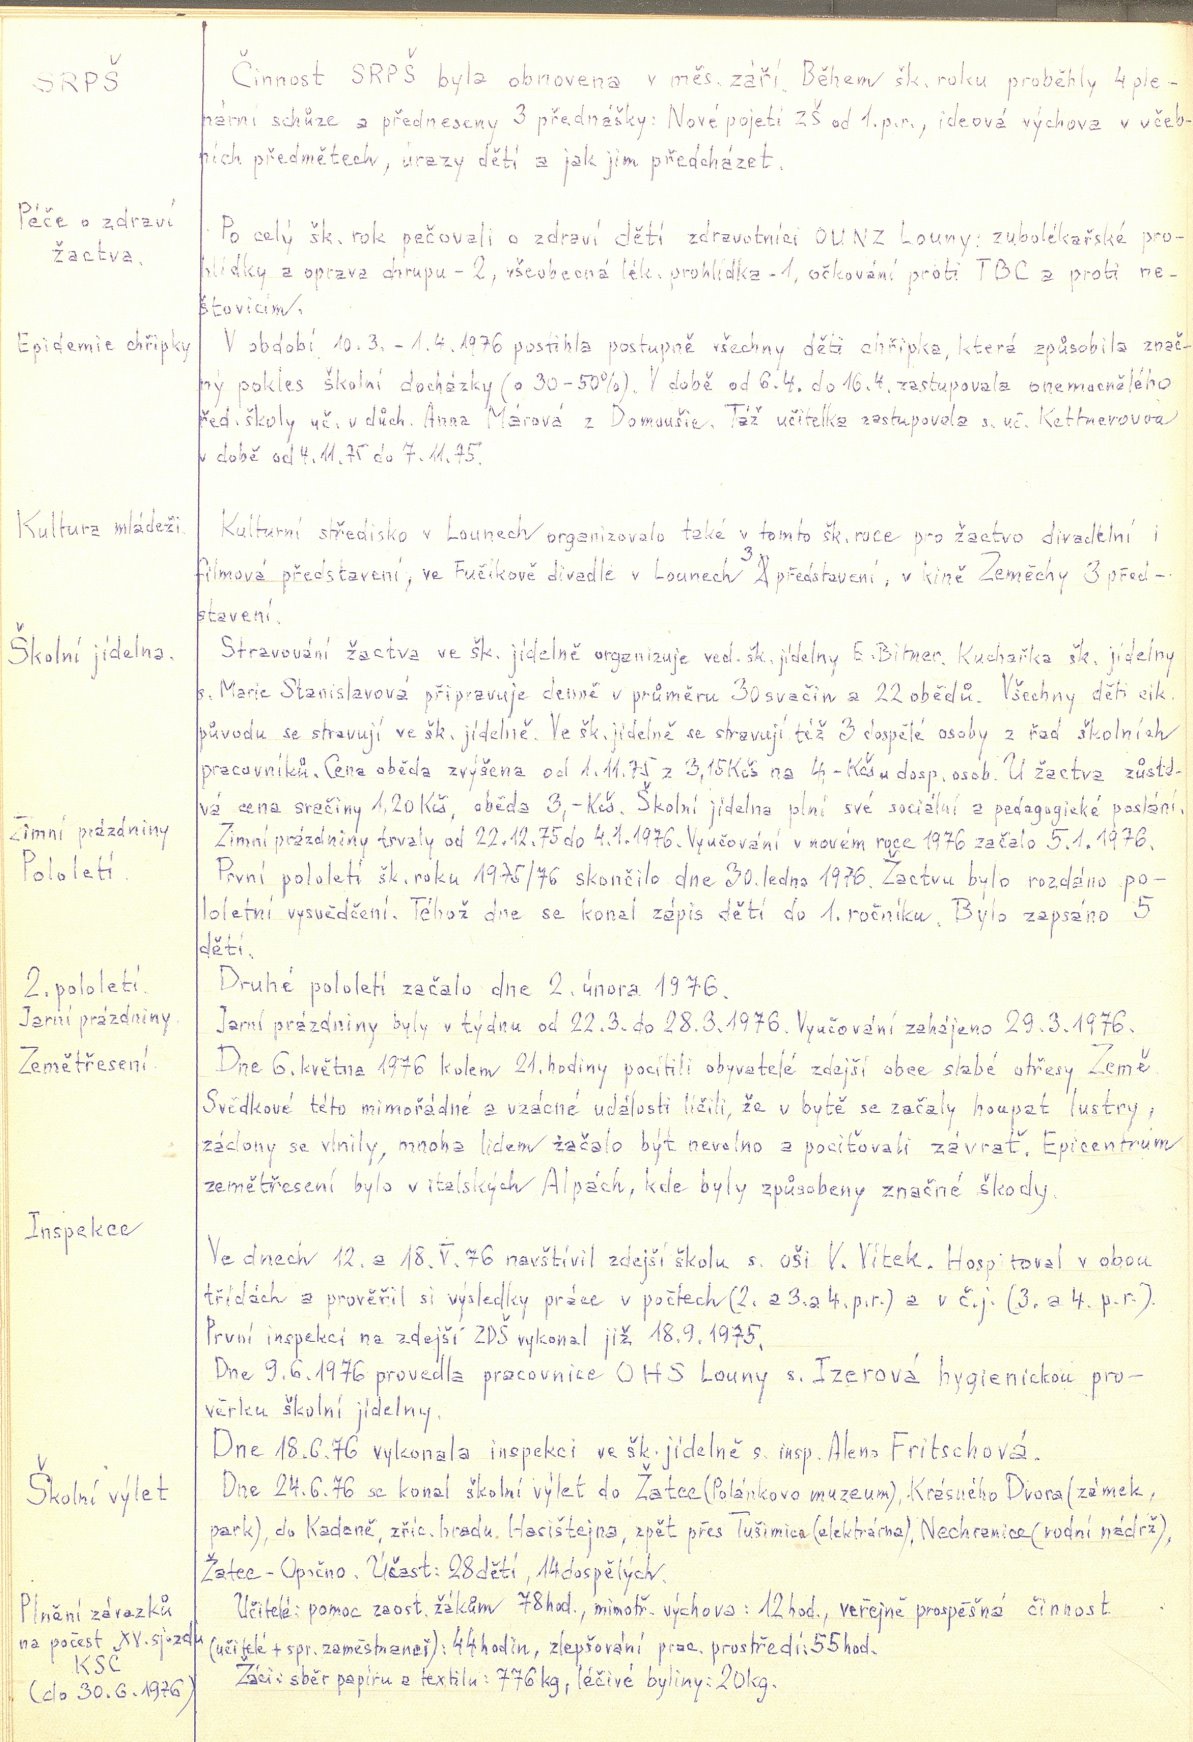 SRPŠ
Činnost SRPŠ byla obnovena v měs. září. Během šk. roku proběhly 4 ple-
nární schůze a předneseny 3 přednášky: Nové pojetí ZŠ od 1.p.r., ideová výchova v učeb-
ních předmětech, úrazy dětí a jak jim předcházet.
Péče o zdraví
žactva.
Po celý šk. rok pečovali o zdraví dětí zdravotníci OÚNZ Louny: zubolékařské pro-
hlídky a oprava chrupu - 2, všeobecná lék. prohlídka - 1, očkování proti TBC a proti ne-
štovicím.
Epidemie chřipky
V období 10.3. - 1.4.1976 postihla postupně všechny děti chřipka, která způsobila znač-
ný pokles školní docházky (o 30-50%). V době od 6.4. do 16.4. zastupovala onemocnělého
řed. školy uč. v důch. Anna Márová z Domoušic. Táž učitelka zastupovala s. uč. Kettnerovou
v době od 4.11.75 do 7.11.75.
Kultura mládeži.
Kulturní středisko v Lounech organizovalo také v tomto šk. roce pro žactvo divadelní i
filmová představení, ve Fučíkově divadle v Lounech 3 představení, v kině Zeměchy 3 před-
stavení.
Školní jídelna.
Stravování žactva ve šk. jídelně organizuje ved. šk. jídelny E. Bitner. Kuchařka šk. jídelny
s. Marie Stanislavová připravuje denně v průměru 30 svačin a 22 obědů. Všechny děti cik.
původu se stravují ve šk. jídelně. Ve šk. jídelně se stravují též 3 dospělé osoby z řad školních
pracovníků. Cena oběda zvýšena od 1.11.75 z 3,15Kčs na 4,-Kčs u dosp. osob. U žactva zůstá-
vá cena svačiny 1,20 Kčs, oběda 3,-Kčs. Školní jídelna plní své sociální a pedagogické poslání.
Zimní prázdniny
Zimní prázdniny trvaly od 22.12.75 do 4.1.1976. Vyučování v novém roce 1976 začalo 5.1.1976.
Pololetí.
První pololetí šk. roku 1975/76 skončilo dne 30. ledna 1976. Žactvu bylo rozdáno po-
loletní vysvědčení. Téhož dne se konal zápis dětí do 1. ročníku. Bylo zapsáno 5
dětí.
2. pololetí.
Druhé pololetí začalo dne 2. února 1976.
Jarní prázdniny.
Jarní prázdniny byly v týdnu od 22.3. do 28.3.1976. Vyučování zahájeno 29.3.1976.
Zemětřesení.
Dne 6. května 1976 kolem 21. hodiny pocítili obyvatelé zdejší obce slabé otřesy Země.
Svědkové této mimořádné a vzácné události líčili, že v bytě se začaly houpat lustry,
záclony se vlnily, mnoha lidem začalo být nevolno a pociťovali závrať. Epicentrum
zemětřesení bylo v italských Alpách, kde byly způsobeny značné škody.
Inspekce
Ve dnech 12. a 18.V.76 navštívil zdejší školu s. oši V. Vítek. Hospitoval v obou
třídách a prověřil si výsledky práce v počtech (2. a 3. a 4. p.r.) a v č.j. (3. a 4. p.r.).
První inspekci na zdejší ZDŠ vykonal již 18.9.1975.
Dne 9.6.1976 provedla pracovnice OHS Louny s. Izerová hygienickou pro-
věrku školní jídelny.
Dne 18.6.76 vykonala inspekci ve šk. jídelně s. insp. Alena Fritschová.
Školní výlet
Dne 24.6.76 se konal školní výlet do Žatce (Polánkovo muzeum), Krásného Dvora (zámek,
park), do Kadaně, zříc. hradu Hasištejna, zpět přes Tušimice (elektrárna), Nechranice (vodní nádrž),
Žatec - Opočno. Účast: 28 dětí, 14 dospělých.
Plnění závazků
na počest XV. sjezdu
KSČ
(do 30.6.1976)
Učitelé: pomoc zaost. žákům 78hod., mimotř. výchova: 12hod., veřejně prospěšná činnost
(učitelé + spr. zaměstnanci): 44 hodin, zlepšování prac. prostředí: 55hod.
Žáci: sběr papíru a textilu: 776kg, léčivé byliny: 20kg.